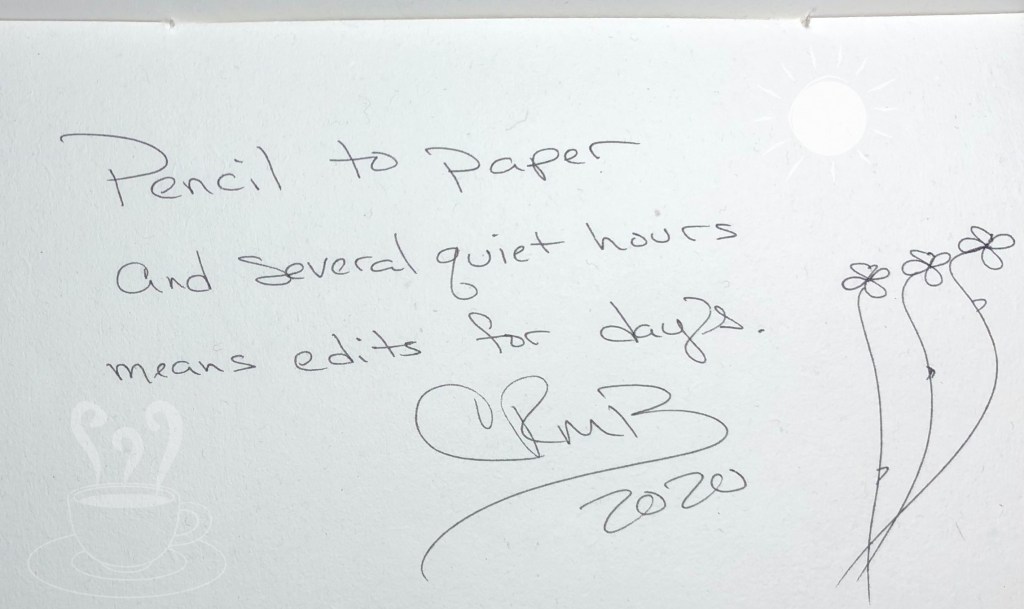 Pencil to paper
and several quiet hours
means edits for days.
CRMB
2020